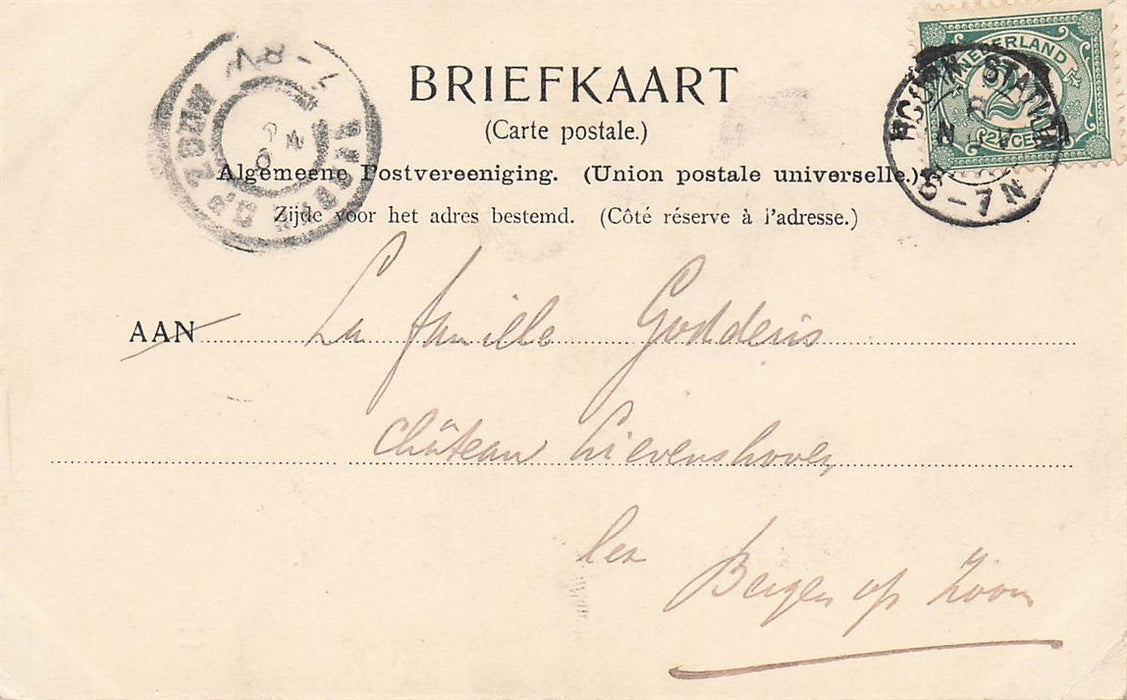 BRIEFKAART
(Carte postale.)
Algemeene Postvereeniging. (Union postale universelle.)
Zijde voor het adres bestemd. (Côté réserve à l'adresse.)
NEDERLAND
2½ CENT
6-7N
7-8V
BERGEN OP ZOOM
AAN La famille Godderis
Château Lievenshoven
les
Bergen op Zoom